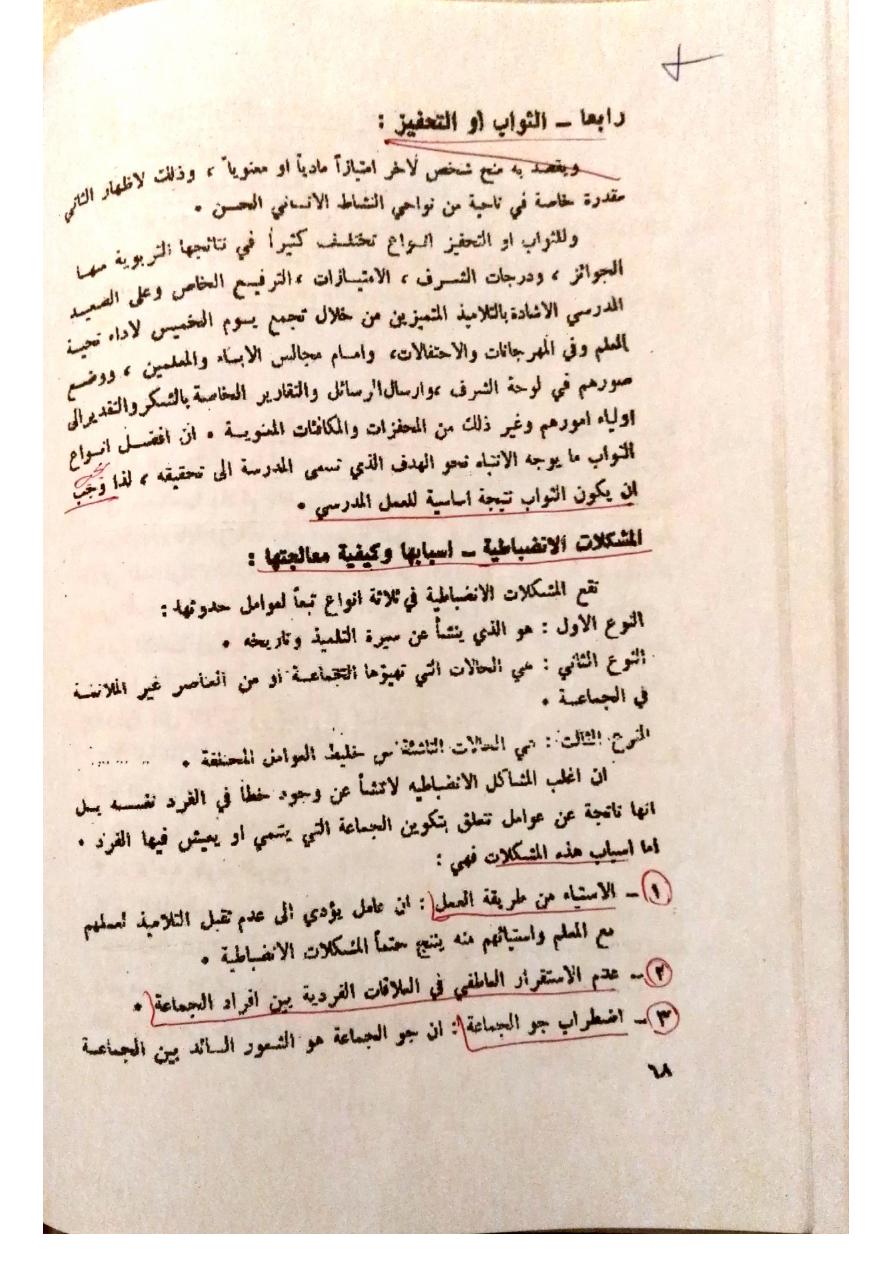 رابعا – الثواب او التحفيز :
ويقصد به منح شخص لآخر امتيازاً مادياً او معنوياً ، وذلك لاظهار الثاني
مقدرة خاصة في ناحية من نواحي النشاط الانساني الحسن .
وللثواب او التحفيز انواع تختلف كثيراً في نتائجها التربوية منها
الجوائز ، ودرجات الشرف ، الامتيازات ، الترفيع الخاص وعلى الصعيد
المدرسي الاشادة بالتلاميذ المتميزين من خلال تجمع يوم الخميس لاداء تحية
العلم وفي المهرجانات والاحتفالات، وامام مجالس الاباء والمعلمين ، ووضع
صورهم في لوحة الشرف ، وارسال الرسائل والتقارير الخاصة بالشكر والتقدير الى
اولياء امورهم وغير ذلك من المحفزات والمكافئات المعنوية . ان افضل انواع
الثواب ما يوجه الانتباه نحو الهدف الذي تسعى المدرسة الى تحقيقه ، لذا وجب
ان يكون الثواب نتيجة اساسية للعمل المدرسي .
المشكلات الانضباطية – اسبابها وكيفية معالجتها :
تقع المشكلات الانضباطية في ثلاثة انواع تبعاً لعوامل حدوثها :
النوع الاول : هو الذي ينشأ عن سيرة التلميذ وتاريخه .
النوع الثاني : هي الحالات التي تهيؤها الجماعة او من العناصر غير الملائمة
في الجماعة .
النوع الثالث : هي الحالات الناشئة من خليط العوامل المختلفة .
ان اغلب المشاكل الانضباطيه لاتنشأ عن وجود خطأ في الفرد نفسه بل
انها ناتجة عن عوامل تتعلق بتكوين الجماعة التي ينتمي او يعيش فيها الفرد .
اما اسباب هذه المشكلات فهي :
١ – الاستياء من طريقة العمل : ان عامل يؤدي الى عدم تقبل التلاميذ لعملهم
مع المعلم واستيائهم منه ينتج حتماً المشكلات الانضباطية .
٢ – عدم الاستقرار العاطفي في العلاقات الفردية بين افراد الجماعة .
٣ – اضطراب جو الجماعة : ان جو الجماعة هو الشعور السائد بين الجماعة
٦٨